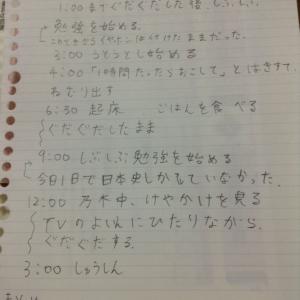 1:00までぐだぐだした後、しぶしぶ
勉強を始める。
この時からイヤホンはつけたままだった。
3:00 うとうとし始める
4:00 「1時間たったらおこして」とはきすて、
ねむり出す
6:30 起床 ごはんを食べる
ぐだぐだしたまま
9:00 しぶしぶ勉強を始める
今日1日で日本史しかしていなかった。
12:00 乃木中、けやかけを見る
TVのよいんにひたりながら、
ぐだぐだする。
3:00 しゅうしん